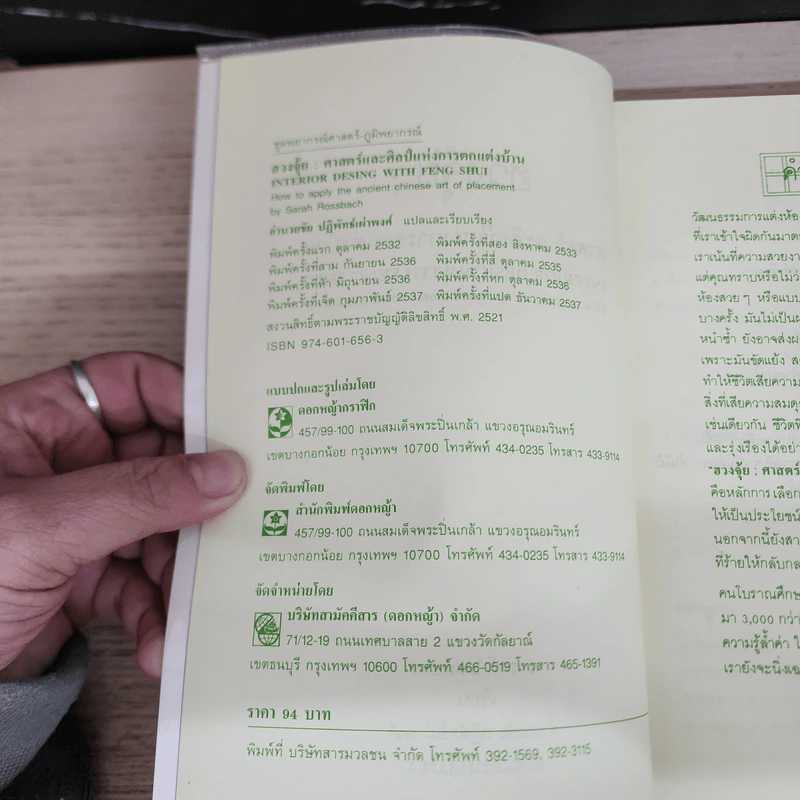 ชุดพยากรณ์ศาสตร์-ภูมิพยากรณ์
ฮวงจุ้ย : ศาสตร์และศิลป์แห่งการตกแต่งบ้าน
INTERIOR DESING WITH FENG SHUI
How to apply the ancient chinese art of placement
by Sarah Rossbach
อำนวยชัย ปฏิพัทธ์เผ่าพงศ์ แปลและเรียบเรียง
พิมพ์ครั้งแรก ตุลาคม 2532 พิมพ์ครั้งที่สอง สิงหาคม 2533
พิมพ์ครั้งที่สาม กันยายน 2536 พิมพ์ครั้งที่สี่ ตุลาคม 2535
พิมพ์ครั้งที่ห้า มิถุนายน 2536 พิมพ์ครั้งที่หก ตุลาคม 2536
พิมพ์ครั้งที่เจ็ด กุมภาพันธ์ 2537 พิมพ์ครั้งที่แปด ธันวาคม 2537
สงวนสิทธิ์ตามพระราชบัญญัติลิขสิทธิ์ พ.ศ. 2521
ISBN 974-601-656-3
แบบปกและรูปเล่มโดย
ดอกหญ้ากราฟิก
457/99-100 ถนนสมเด็จพระปิ่นเกล้า แขวงอรุณอมรินทร์
เขตบางกอกน้อย กรุงเทพฯ 10700 โทรศัพท์ 434-0235 โทรสาร 433-9114
จัดพิมพ์โดย
สำนักพิมพ์ดอกหญ้า
457/99-100 ถนนสมเด็จพระปิ่นเกล้า แขวงอรุณอมรินทร์
เขตบางกอกน้อย กรุงเทพฯ 10700 โทรศัพท์ 434-0235 โทรสาร 433-9114
จัดจำหน่ายโดย
บริษัทสามัคคีสาร (ดอกหญ้า) จำกัด
71/12-19 ถนนเทศบาลสาย 2 แขวงวัดกัลยาณ์
เขตธนบุรี กรุงเทพฯ 10600 โทรศัพท์ 466-0519 โทรสาร 465-1391
ราคา 94 บาท
พิมพ์ที่ บริษัทสารมวลชน จำกัด โทรศัพท์ 392-1569, 392-3115
วัฒนธรรมการแต่งห้อง
ที่เราเข้าใจผิดกันมาต
เราเน้นที่ความสวยงา
แต่คุณทราบหรือไม่ว่
ห้องสวย ๆ หรือแบบ
บางครั้ง มันไม่เป็นผ
หนำซ้ำ ยังอาจส่งผ
เพราะมันขัดแย้ง ส
ทำให้ชีวิตเสียความ
สิ่งที่เสียความสมดุ
เช่นเดียวกัน ชีวิตที่
และรุ่งเรืองได้อย่า
"ฮวงจุ้ย : ศาสตร์
คือหลักการ เลือก
ให้เป็นประโยชน์
นอกจากนี้ยังสา
ที่ร้ายให้กลับกล
คนโบราณศึกษ
มา 3,000 กว่า
ความรู้ล้ำค่า ใ
เรายังจะนิ่งเฉ